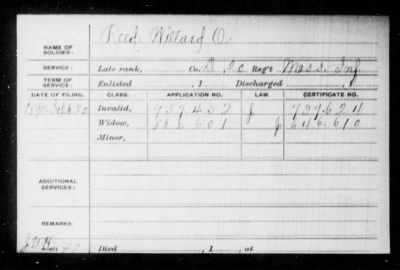 NAME OF SOLDIER: Reed, Willard O.
SERVICE: Late rank, Co. D, Reg't Mass. Inf.
TERM OF SERVICE: Enlisted , 1 Discharged , 1
DATE OF FILING. CLASS. APPLICATION NO. LAW. CERTIFICATE NO.
1890, Sept. Invalid, 737.624
Widow, 601 646.610
Minor,
ADDITIONAL SERVICES:
REMARKS:
Died , 1 , at